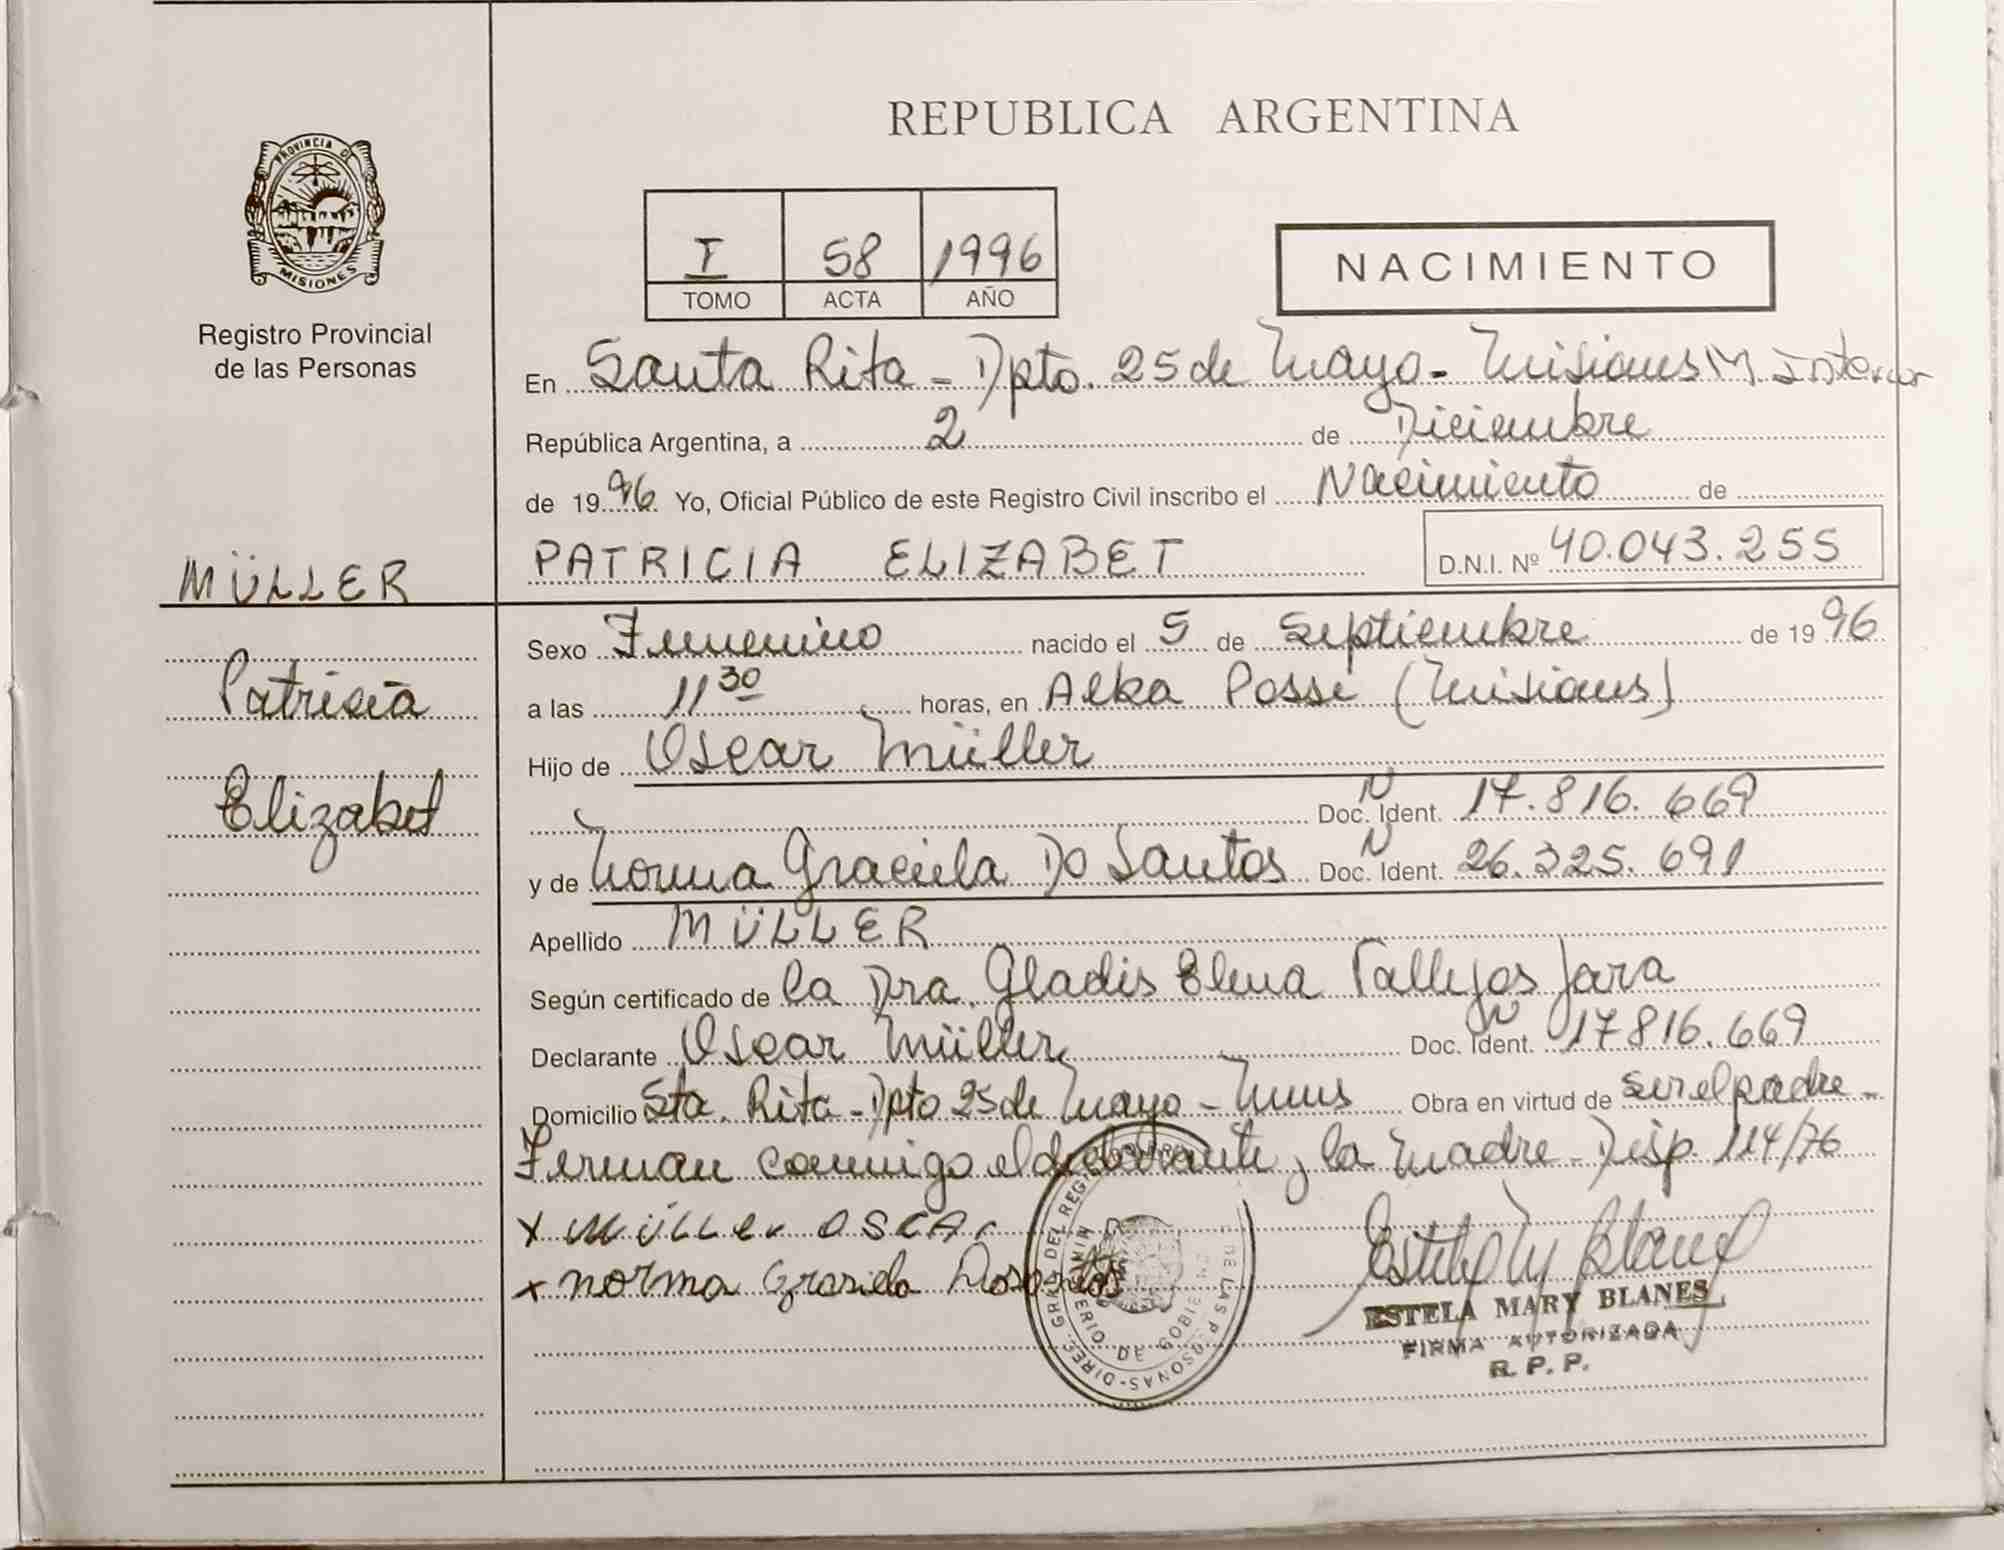 REPUBLICA ARGENTINA
PROVINCIA DE
MISIONES
Registro Provincial
de las Personas
I 58 1996
TOMO ACTA AÑO
NACIMIENTO
En Santa Rita - Dpto. 25 de Mayo - Misiones M. Interior
República Argentina, a 2 de Diciembre
de 1996. Yo, Oficial Público de este Registro Civil inscribo el Nacimiento de
PATRICIA ELIZABET D.N.I. Nº 40.043.255
MÜLLER
Patricia
Elizabet
Sexo Femenino nacido el 5 de Septiembre de 1996
a las 11 30 horas, en Alba Posse (Misiones)
Hijo de Oscar Müller
Doc. N Ident. 17.816.669
y de Norma Graciela Do Santos Doc. N Ident. 26.325.691
Apellido MÜLLER
Según certificado de la Dra. Gladis Elena Vallejos Jara
Declarante Oscar Müller Doc. N Ident. 17816.669
Domicilio Sta. Rita - Dpto 25 de Mayo - Mnes Obra en virtud de ser el padre -
Firman conmigo el declarante y la madre - Disp. 114/76
x MÜLLER OSCAr
x norma Grasiela Dosantos
ESTELA MARY BLANES
FIRMA AUTORIZADA
R. P. P.